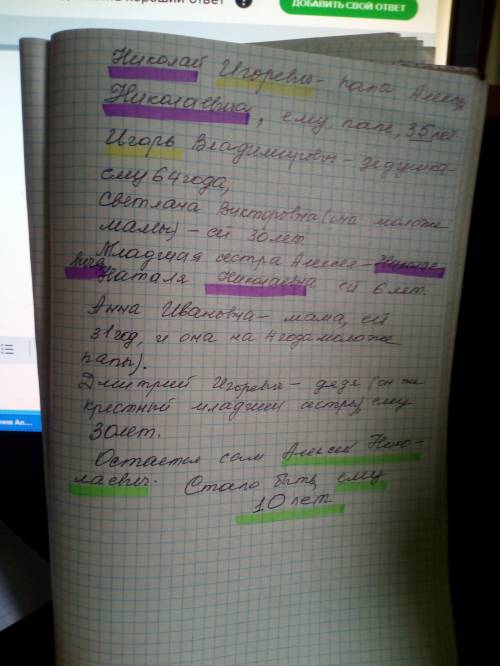 хороший ответ
ДОБАВИТЬ СВОЙ ОТВЕТ
Николай Игоревич - папа Алексея
Николаевича, ему, папе, 35 лет
Игорь Владимирович - дедушка -
ему 64 года,
Светлана Викторовна (она моложе
мамы) - ей 30 лет.
Младшая сестра Алексея - Николае
вича
Наталя Николаевна ей 6 лет.
Анна Ивановна - мама, ей
31 год, и она на 4 года моложе
папы).
Дмитрий Игоревич - дядя (он же
крестный младшей сестры, ему
30 лет.
Остается сам Алексей Нико-
лаевич. Стало быть, ему
10 лет